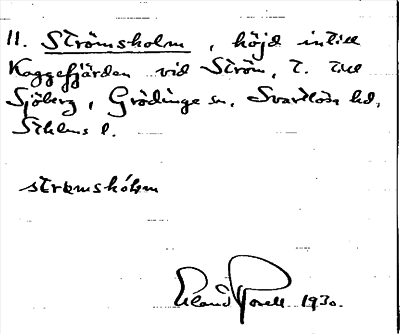 11. Strömsholm, höjd intill
Kaggefjärden vid Ström, T. till
Sjöberg, Grödinge sn, Svartlösa hd,
Sthlms l.
strømshólm
1930.